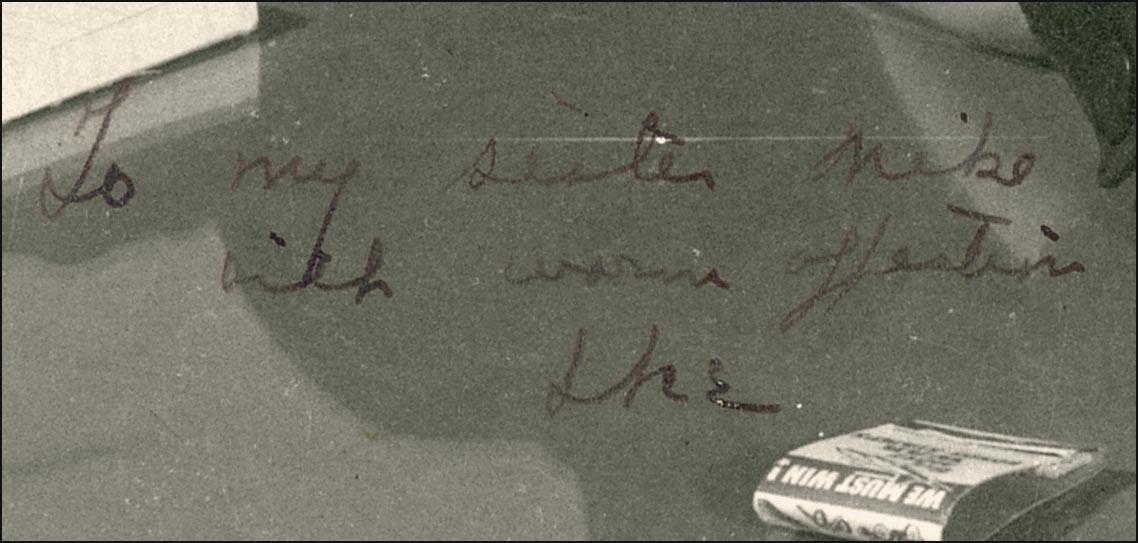 To my sister Mike
with warm affection
Ike
WE MUST WIN!